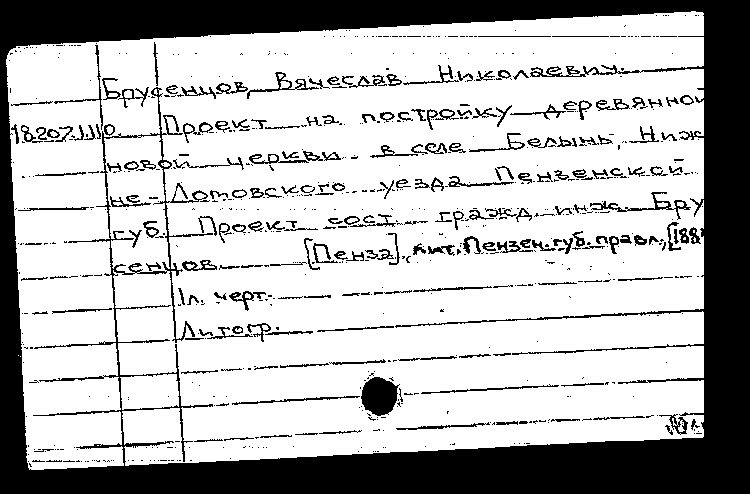 Брусенцов, Вячеслав Николаевич.
18.207.1.110 Проект на постройку деревянной
новой церкви в селе Белынь, Ниж
не-Ломовского уезда Пензенской
губ. Проект сост. гражд. инж. Бру
сенцов. [Пенза], лит. Пензен. губ. правл., [188
1 л. черт.
Литогр.